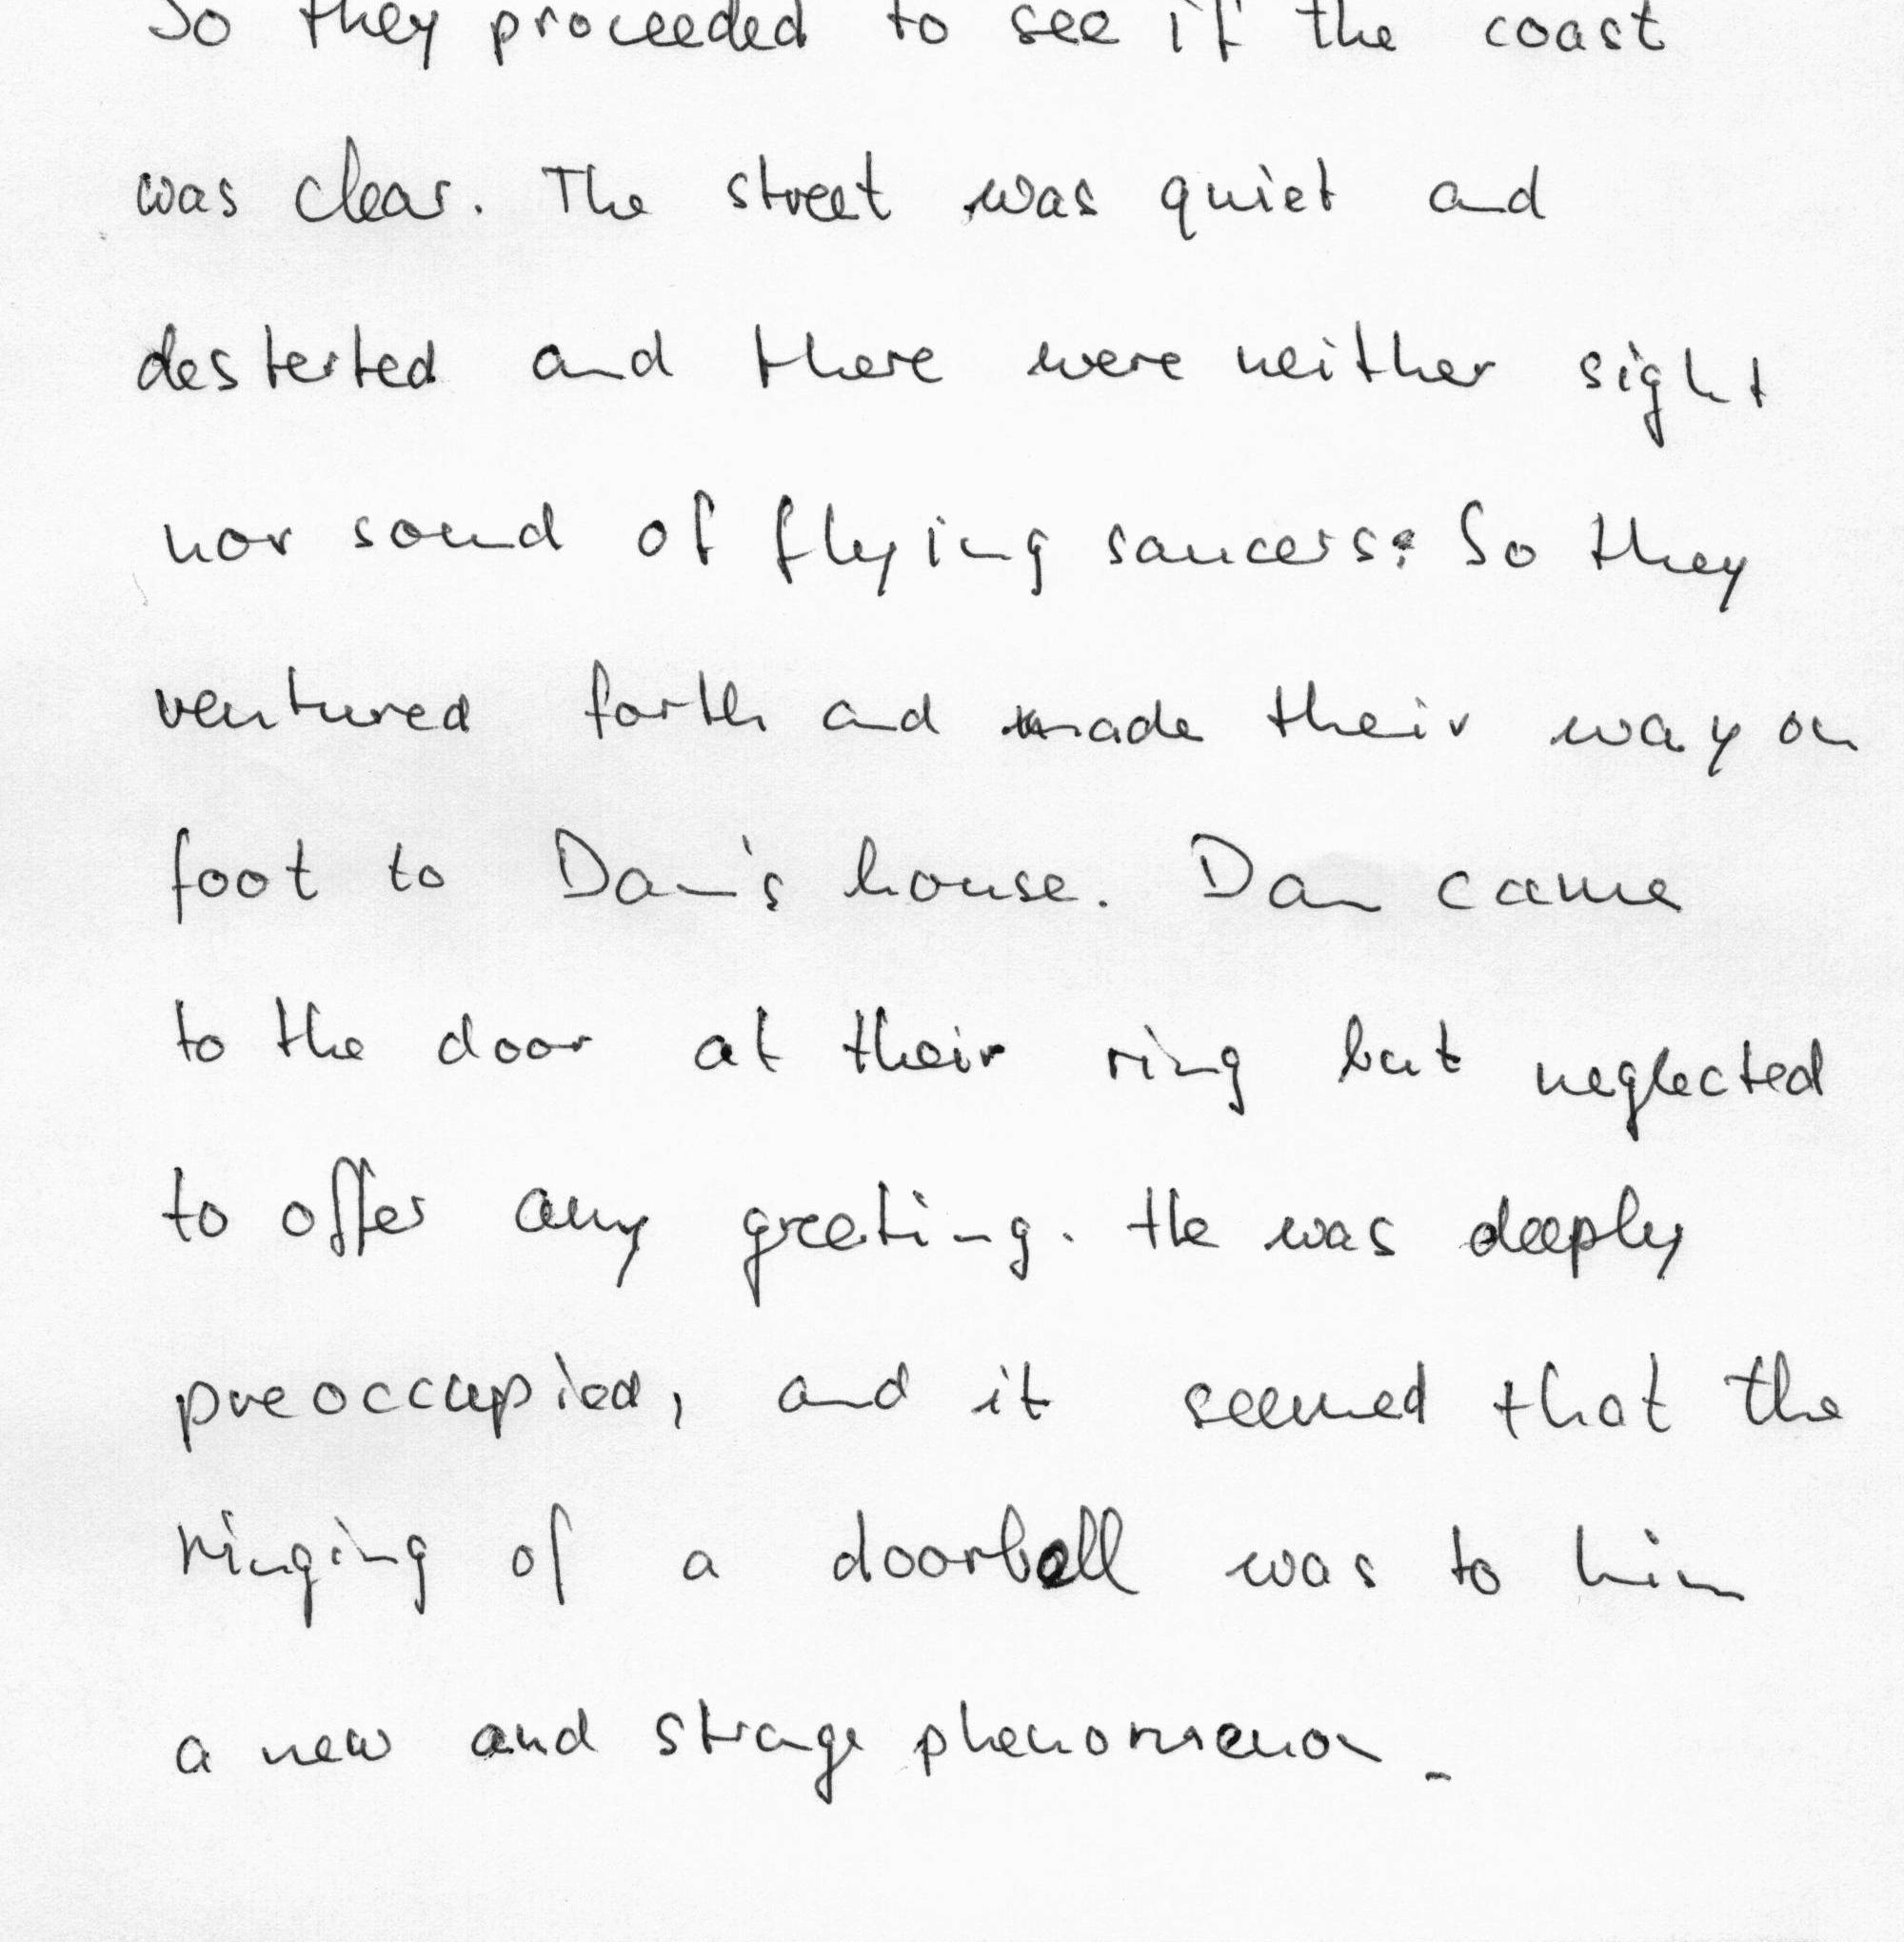 So they proceeded to see if the coast
was clear. The street was quiet and
desterted and there were neither sight
nor sound of flying saucers. So they
ventured forth and made their way on
foot to Dan's house. Dan came
to the door at their ring but neglected
to offer any greeting. He was deeply
preoccupied, and it seemed that the
ringing of a doorbell was to him
a new and strange phenomenon.